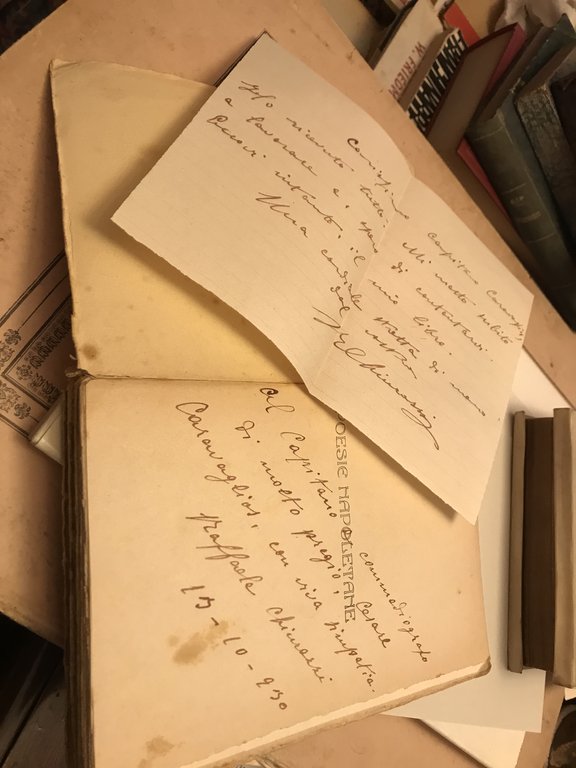 Carissimo Capitano Caravaglios
ho ricevuto tutto. Mi metto subito
a lavorare e spero di contentarvi.
Eccovi intanto il mio libro.
Una cordiale stretta di mano
dal vostro
Chiurazzi
POESIE NAPOLETANE
Al Capitano e commediografo
di molto pregio, Cesare
Caravaglios, con viva simpatia.
Raffaele Chiurazzi
15-10-930